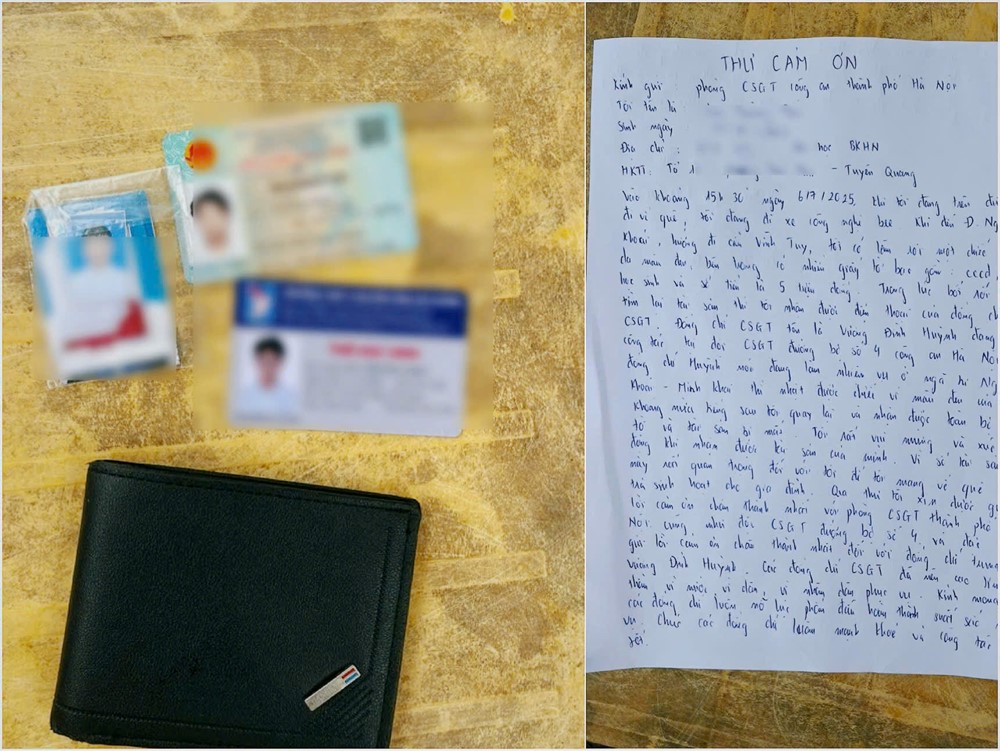 THƯ CẢM ƠN
Kính gửi: phòng CSGT công an thành phố Hà Nội
Tôi tên là
Sinh ngày
Địa chỉ: học BKHN
HKTT: Tổ 1 - Tuyên Quang
Vào khoảng 15h 30 ngày 6/7/2025. Khi tôi đang trên đườ
đi về quê, tôi đang đi xe công nghệ bee khi đến Đ. Ng
Khoái, hướng đi cầu Vĩnh Tuy, tôi có làm rơi một chiếc
da màu đen, bên trong có nhiều giấy tờ bao gồm: cccd
học sinh và số tiền là 5 triệu đồng. Trong lúc bối rối
tìm lại tài sản thì tôi nhận được điện thoại của đồng ch
CSGT. Đồng chí CSGT tên là Vương Đình Huỳnh đang
công tác tại đội CSGT đường bộ số 4 công an Hà Nộ
đồng chí Huỳnh nói đang làm nhiệm vụ ở ngã tư Ng
Khoái - Minh Khai thì nhặt được chiếc ví màu đen của
không mừng sau tôi quay lại và nhận được toàn bộ
tờ và tài sản bị mất. Tôi rất vui mừng và xúc
động khi nhận được tài sản của mình. Vì số tài sản
này rất quan trọng đối với tôi để tôi mang về quê
trả sinh hoạt cho gia đình. Qua thư tôi xin được gử
lời cảm ơn chân thành nhất với phòng CSGT thành phố
Nội cũng như đội CSGT đường bộ số 4 và đặc
gửi lời cảm ơn chân thành nhất đối với đồng chí
Vương Đình Huỳnh. Các đồng chí CSGT đã nêu cao tinh
thần, vì nước vì dân, vì nhân dân phục vụ. Kính mong
các đồng chí luôn nỗ lực phấn đấu hoàn thành xuất sắc
vụ. Chúc các đồng chí luôn mạnh khỏe và công tác
tốt.